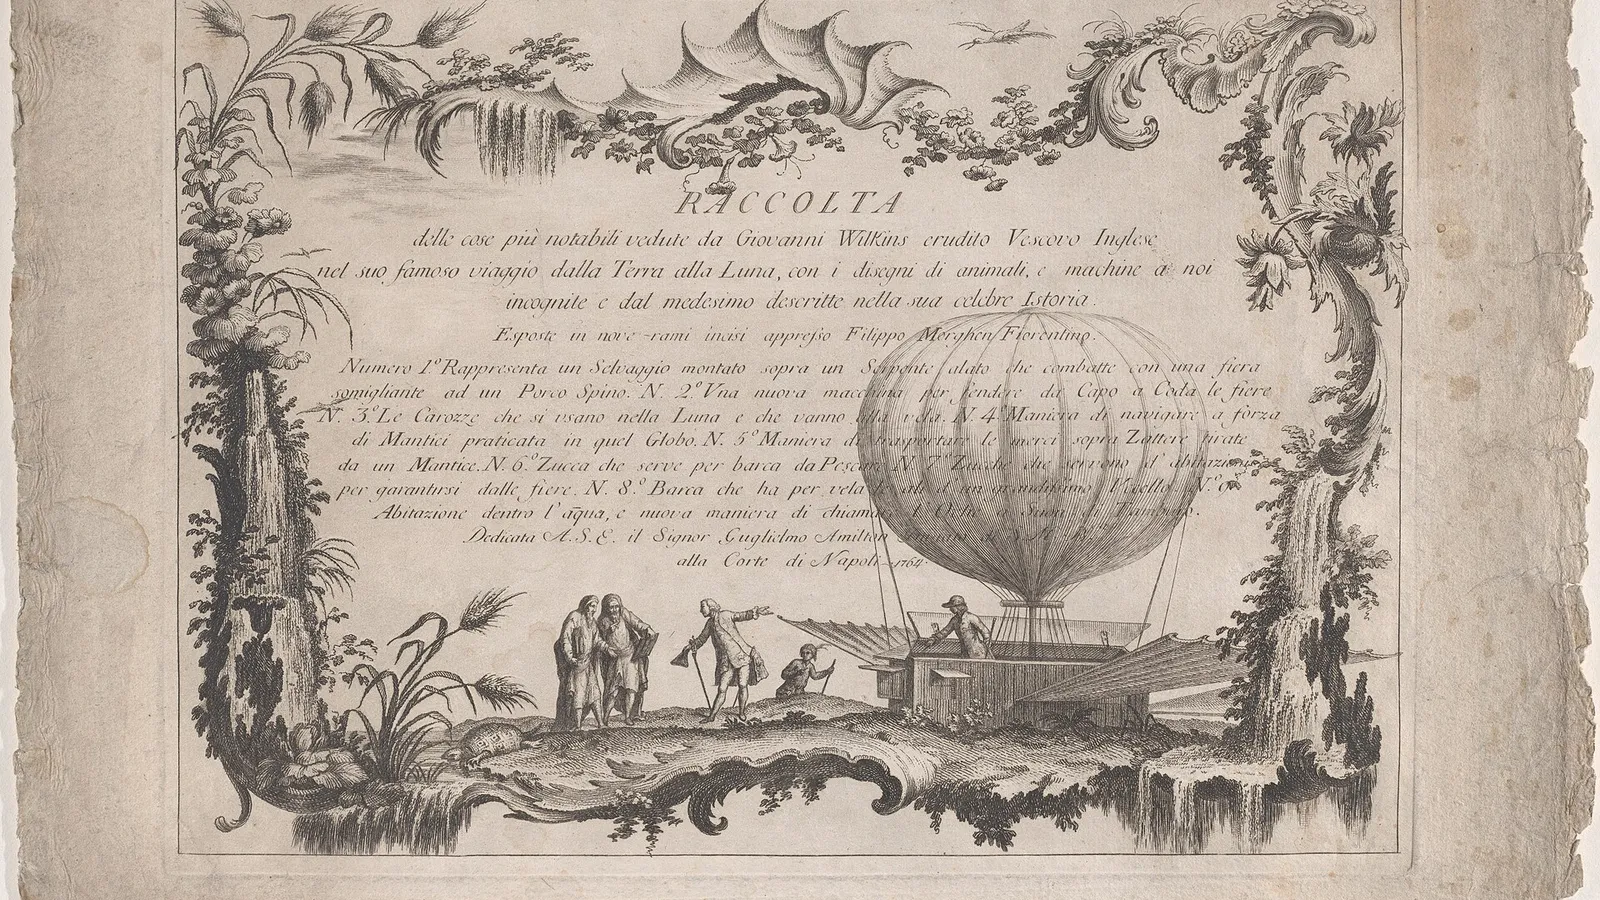 RACCOLTA
delle cose più notabili vedute da Giovanni Wilkins erudito Vescovo Inglese
nel suo famoso viaggio dalla Terra alla Luna, con i disegni di animali, e machine a noi
incognite e dal medesimo descritte nella sua celebre Istoria.
Esposte in nove rami incisi appresso Filippo Morghen Fiorentino.
Numero 1º Rappresenta un Selvaggio montato sopra un Serpente alato che combatte con una fiera
somigliante ad un Porco Spino. N. 2º Una nuova macchina per fendere da Capo a Coda le fiere
N. 3º Le Carozze che si usano nella Luna e che vanno alla vela. N. 4º Maniera di navigare a forza
di Mantici praticata in quel Globo. N. 5º Maniera di trasportare le merci sopra Zattere tirate
da un Mantice. N. 6º Zucca che serve per barca da Pescare N. 7º Zucche che servono d'abitazione
per garantirsi dalle fiere. N. 8º Barca che ha per vela le ali d'un grandissimo Uccello N. 9º
Abitazione dentro l'aqua, e nuova maniera di chiamar
Dedicata A. S. E. il Signor Guglielmo Amilton
alla Corte di Napoli 1764